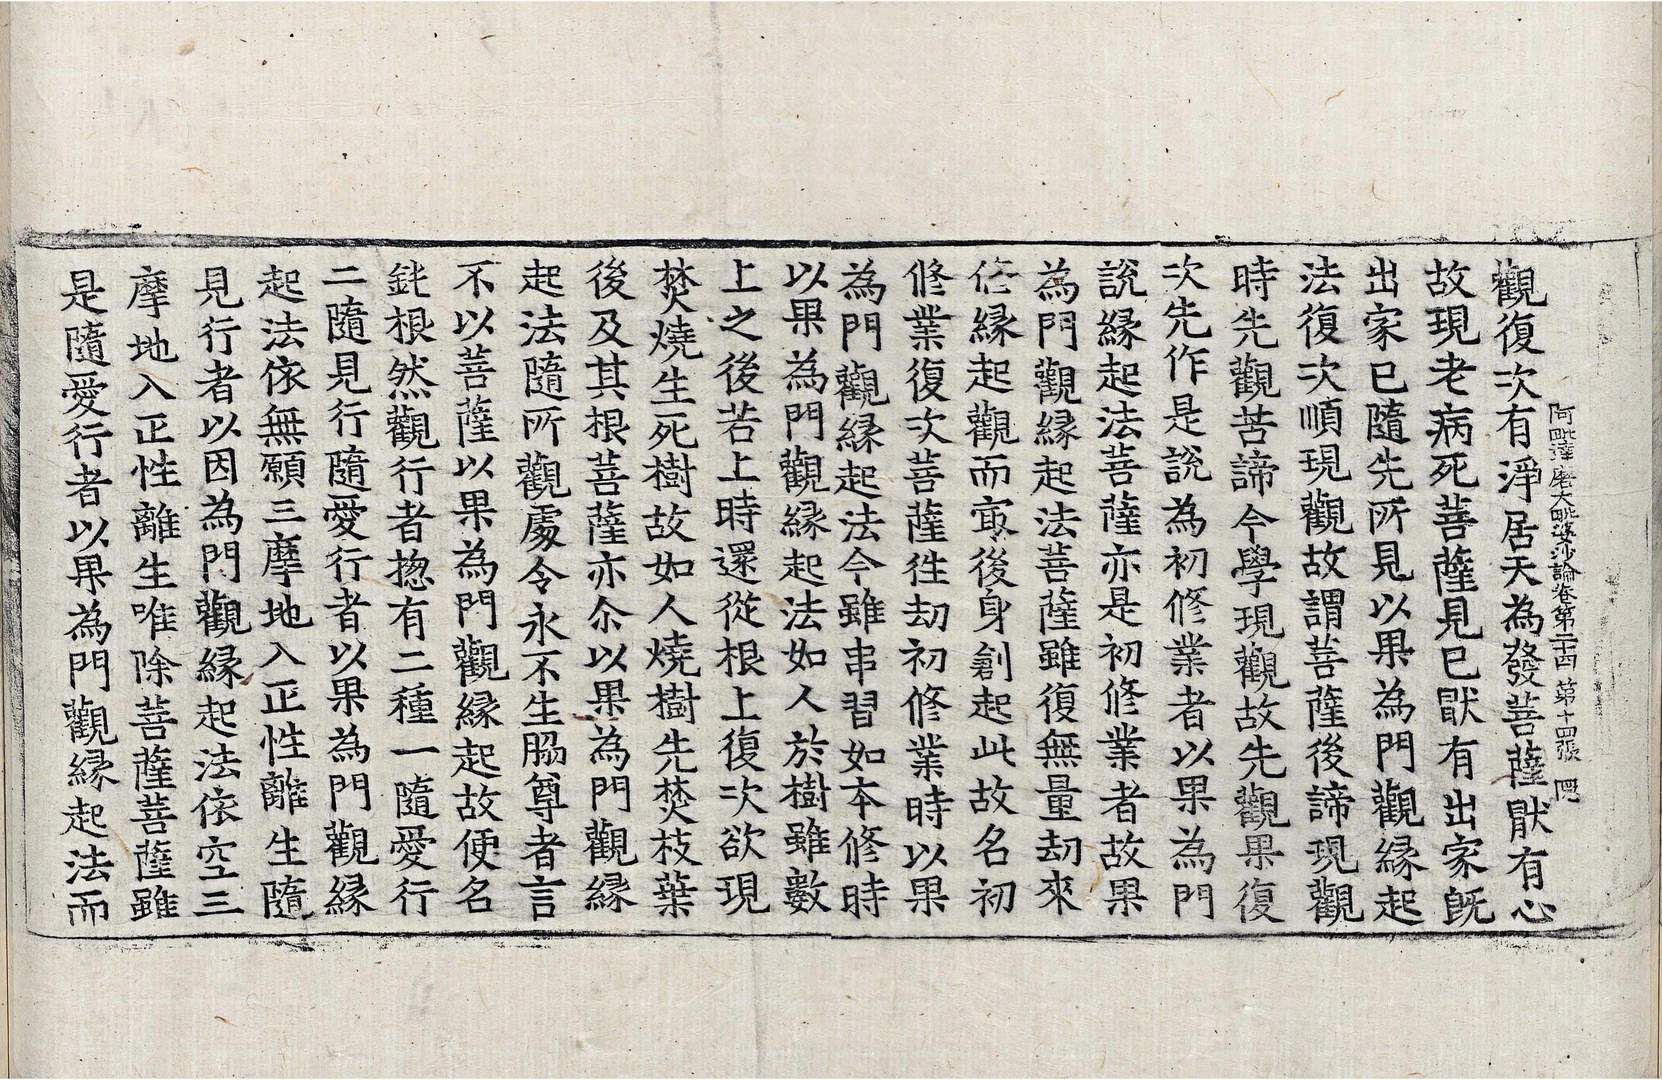 阿毗達磨大毗婆沙論卷第二十四 第十四張
觀復次有淨居天為發菩薩猒有心
故現老病死菩薩見已猒有出家旣
出家已隨先所見以果為門觀縁起
法復次順現觀故謂菩薩後諦現觀
時先觀苦諦今學現觀故先觀果復
次先作是說為初修業者以果為門
說縁起法菩薩亦是初修業者故果
為門觀縁起法菩薩雖復無量劫來
修縁起觀而㝡後身創起此故名初
修業復次菩薩徃劫初修業時以果
為門觀縁起法今雖串習如本修時
以果為門觀縁起法如人於樹雖數
上之後若上時還從根上復次欲現
焚燒生死樹故如人燒樹先焚枝葉
後及其根菩薩亦尒以果為門觀縁
起法隨所觀處令永不生脇尊者言
不以菩薩以果為門觀縁起故便名
鈍根然觀行者揔有二種一隨愛行
二隨見行隨愛行者以果為門觀縁
起法依無願三摩地入正性離生隨
見行者以因為門觀縁起法依空三
摩地入正性離生唯除菩薩菩薩雖
是隨愛行者以果為門觀縁起法而